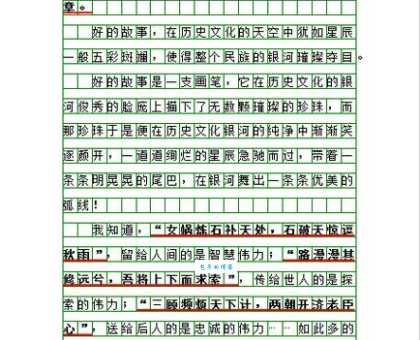 章。
好的故事，在历史文化的天空中犹如星辰
一般五彩斑斓，使得整个民族的银河璀璨夺目。
好的故事是一支画笔，它在历史文化的银
河俊秀的脸庞上描下了无数颗璀璨的珍珠，而
那珍珠于是便在历史文化银河的纯净中渐渐笑
逐颜开，一道道绚烂的星辰急驰而过，带着一
条条明晃晃的尾巴，在银河舞出一条条优美的
弧线！
我知道，“女娲炼石补天处，石破天惊逗
秋雨”，留给人间的是智慧伟力；“路漫漫其
修远兮，吾将上下而求索”，传给世人的是探
索的伟力；“三顾频烦天下计，两朝开济老臣
心”，送给后人的是忠诚的伟力……如此多的